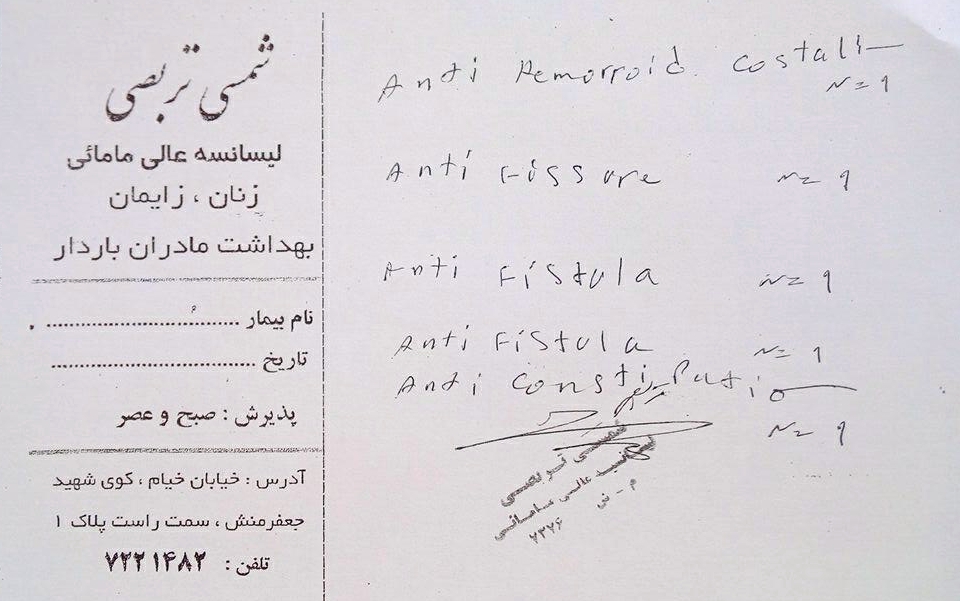 شمسی تربصی
لیسانسه عالی مامائی
زنان ، زایمان
بهداشت مادران باردار
نام بیمار
تاریخ
پذیرش : صبح و عصر
آدرس : خیابان خیام ، کوی شهید
جعفرمنش ، سمت راست پلاک ۱
تلفن : ۷۲۲۱۴۸۲
Anti Hemorroid. Costall
N=1
Anti Fissure N=1
Anti Fistula N=1
Anti Fistula N=1
Anti Constipatio
N=1
شمسی تربصی
لیسانسه عالی مامائی
م - ش
۷۳۷۶